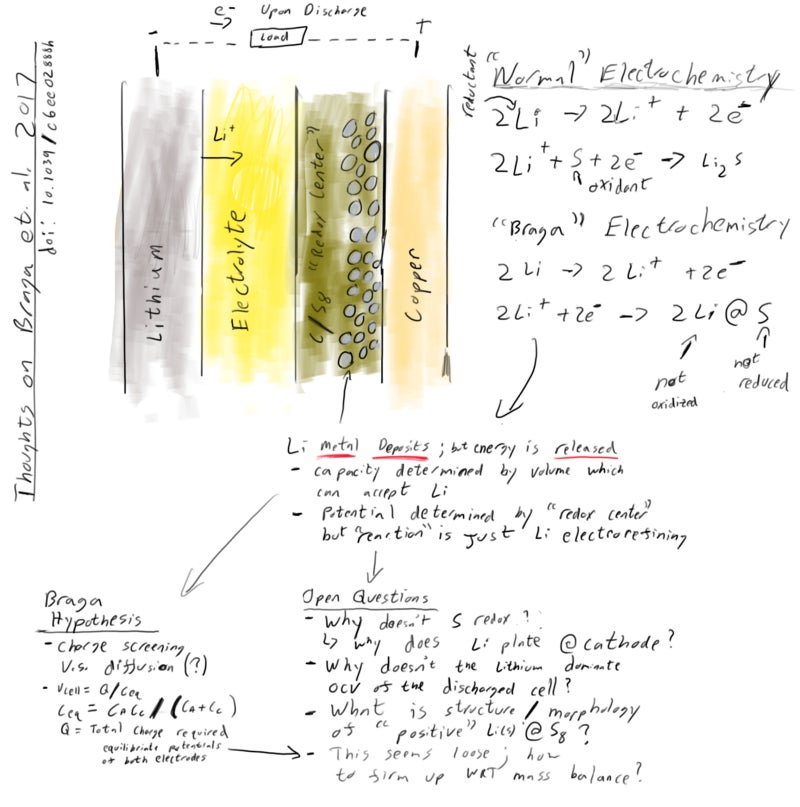 Thoughts on Braga et. al. 2017
doi: 10.1039/c6ee02888h
e⁻ Upon Discharge
→
-
Load
+
Li⁺
Lithium
Electrolyte
C/S8 "Redox Center"
Copper
"Normal" Electrochemistry
reductant
2Li → 2Li⁺ + 2e⁻
2Li⁺ + S + 2e⁻ → Li₂S
oxidant
"Braga" Electrochemistry
2 Li → 2 Li⁺ + 2e⁻
2 Li⁺ + 2e⁻ → 2 Li @ S
not
oxidized
not
reduced
Li metal Deposits; but energy is released
- capacity determined by volume which
can accept Li
- Potential determined by "redox center"
but "reaction" is just Li electrorefining
Braga
Hypothesis
- charge screening
v.s. diffusion (?)
- Vcell = Q/Ceq
Ceq = CACc / (CA+Cc)
Q = Total charge required
equilibriate potentials
of both electrodes
Open Questions
- Why doesn't S redox?
↳ why does Li plate @ cathode?
- Why doesn't the Lithium dominate
OCV of the discharged cell?
- What is structure/morphology
of "positive" Li(s) @ S8?
- This seems loose; how
to firm up WRT mass balance?